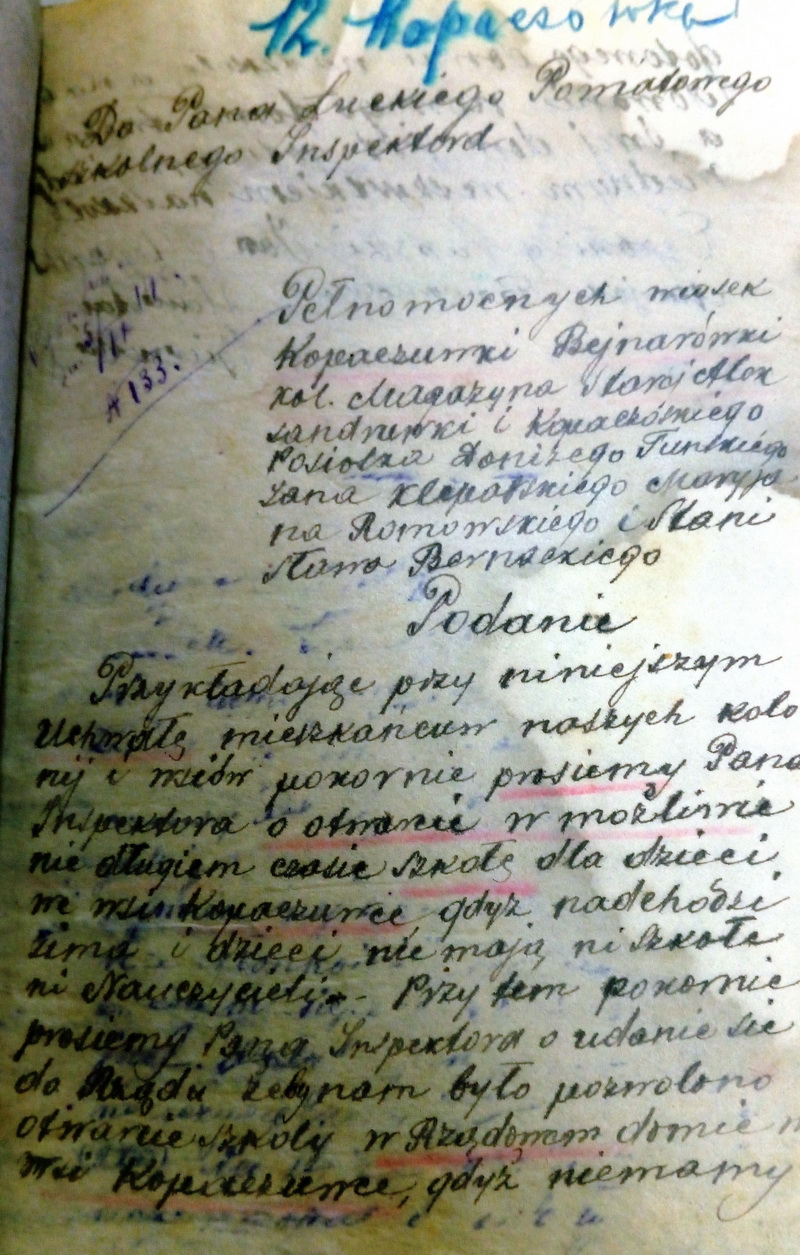 12. Kopaczówka
Do Pana Łuckiego Pomatowego
szkolnego Inspektora
Pełnomocnych wiosek
Kopaczuwki Bejnarówki
kol. Magazyna Starej Alek
sandruwki i Kopaczóskiego
Posiołka Donizego Tunskiego
Jana Klepatskiego Maryja
na Romowskiego i Stani
sława Bernackiego
№ 133.
Podanie
Przykładając przy niniejszym
Uchwałę mieszkańcuw naszych kolo
nij i wsiów pokornie prosiemy Pana
Inspektora o otwarcie w możliwie
nie długiem czasie szkołę dla dzieci
we wsi Kopaczuwce gdyż nadchodzi
zima i dzieci nie mają ni szkołe
ni Nauczycieli - Przy tem pokornie
prosiemy Pana Inspektora o udanie sie
do Rządu żeby nam było pozwolono
otwarcie szkoły w Rządowem domie w
wsi Kopaczuwce, gdyż niemamy